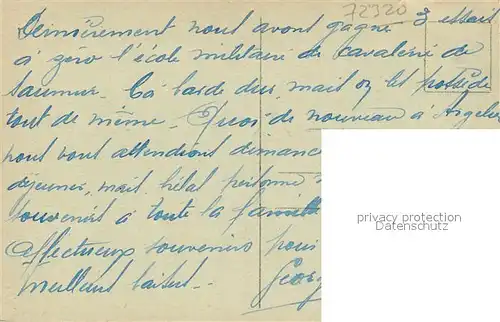 72320
Dernièrement nous avons gagné 3 essais
à zéro l'école militaire de cavalerie de
Saumur. Ça barde dur, mais on les possède
tout de même. Quoi de nouveau à
nous vous attendions
déjeuner, mais hélas personne
souvenirs à toute la famille
affectueux souvenirs pour
meilleurs baisers.
privacy protection
Datenschutz